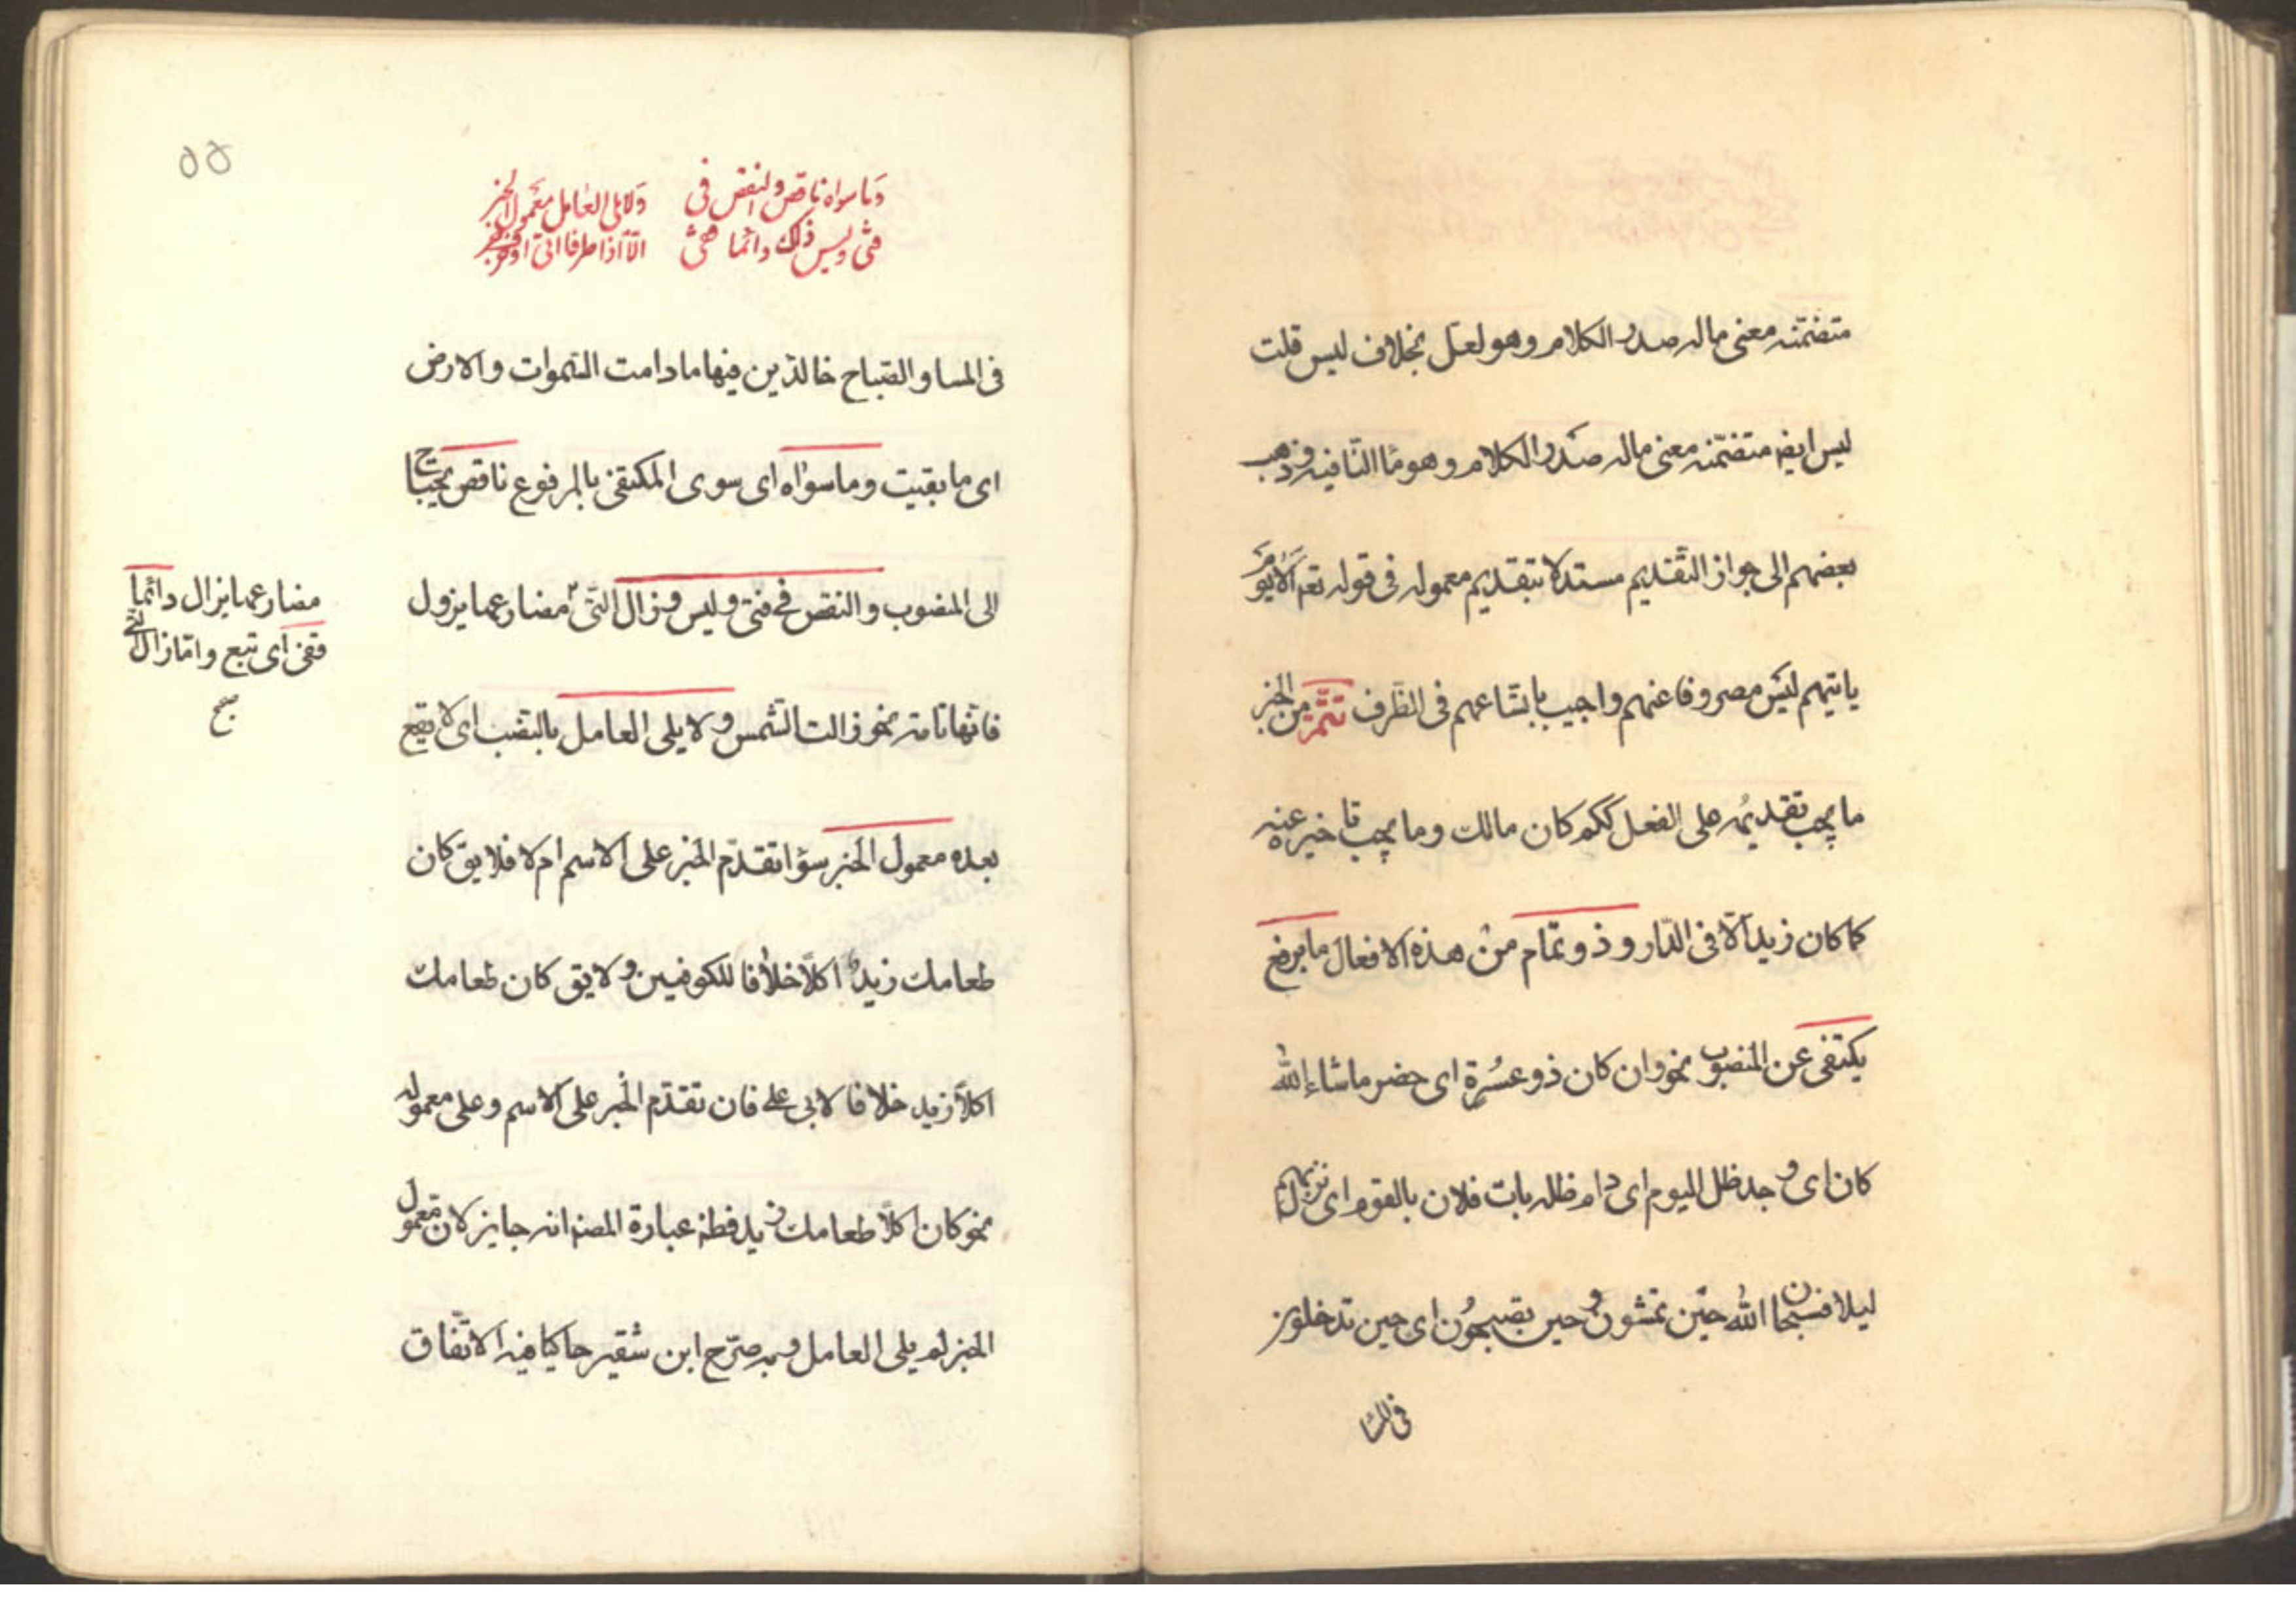 متضمّنه معنى ماله صدر الكلام وهو لعلّ بخلاف ليس قلت
ليس ايضه متضمّنه معنى ماله صدر الكلام وهو ما النّافيه وذهب
بعضهم الى جواز التّقديم مستدلا بتقديم معموله فى قوله تعه اَلا يوم
ياتيهم ليس مصروفا عنهم واجيب باتّساعهم فى الظّرف تتمّة من الخبر
ما يجب تقديمه على الفعل ككم كان مالك وما يجب تاخيره عنه
كما كان زيد الّا فى الدّار وذو تمام من هذه الافعال ما برفع
يكتفى عن المنصوب نحو وان كان ذو عسرة اى حضر ما شاء الله
كان اى وجد ظل اليوم اى دام ظله بات فلان بالقوم اى نزل بهم
ليلا فسبحان الله حين تمسون وحين تصبحون اى حين تدخلون
فى المسا
٥٥
وما سواه ناقص والنقص فى ولا يلى العامل معمول الخبر
فتئ ليس زال دائما قفى الّا اذا ظرفا اتى او حرف جر
فى المسا والصّباح خالدين فيها مادامت السّموات والارض
اى ما بقيت وما سواه اى سوى المكتفى بالمرفوع ناقص يحتاج
الى المنصوب والنقص فى فتئ وليس وزال الّتى مضارعها يزول
فانّها تامّه نحو زالت الشّمس ولا يلى العامل بالنصب اى لا يقع
بعده معمول الخبر سوا تقدّم الخبر على الاسم ام لا فلا يق كان
طعامك زيد اكلا خلافا للكوفيين ولا يق كان طعامك
اكلا زيد خلافا لابى على فان تقدّم الخبر على الاسم وعلى معموله
نحو كان اكلا طعامك زيد فظه عبارة المصنه انه جايز لان معمول
الخبر لم يلى العامل وبه صرّح ابن شقير حاكيا فيه الاتّفاق
مضارعها يزال دائما
قفى اى تبع وامّا زال الّتى
صح